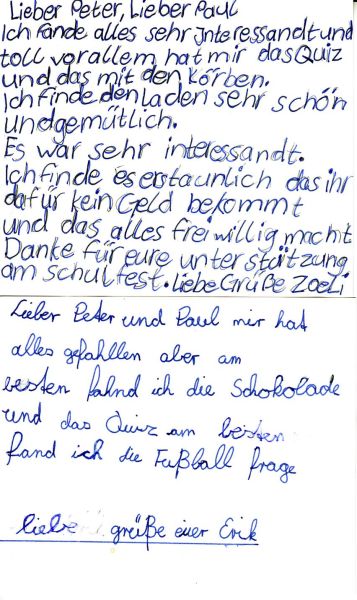 Lieber Peter, Lieber Paul
Ich fände alles sehr Interessandt und
toll vorallem hat mir das Quiz
und das mit den Körben.
Ich finde den laden sehr schön
und gemütlich.
Es war sehr interessandt.
Ich finde es erstaunlich das ihr
dafür kein Geld bekommt
und das alles freiwillig macht
Danke für eure unterstützung
am schulfest. Liebe Grüße Zoe Li
Lieber Peter und Paul mir hat
alles gefahllen aber am
besten fahnd ich die Schokolade
und das Quiz am besten
fand ich die Fußball frage
liebe grüße euer Erik